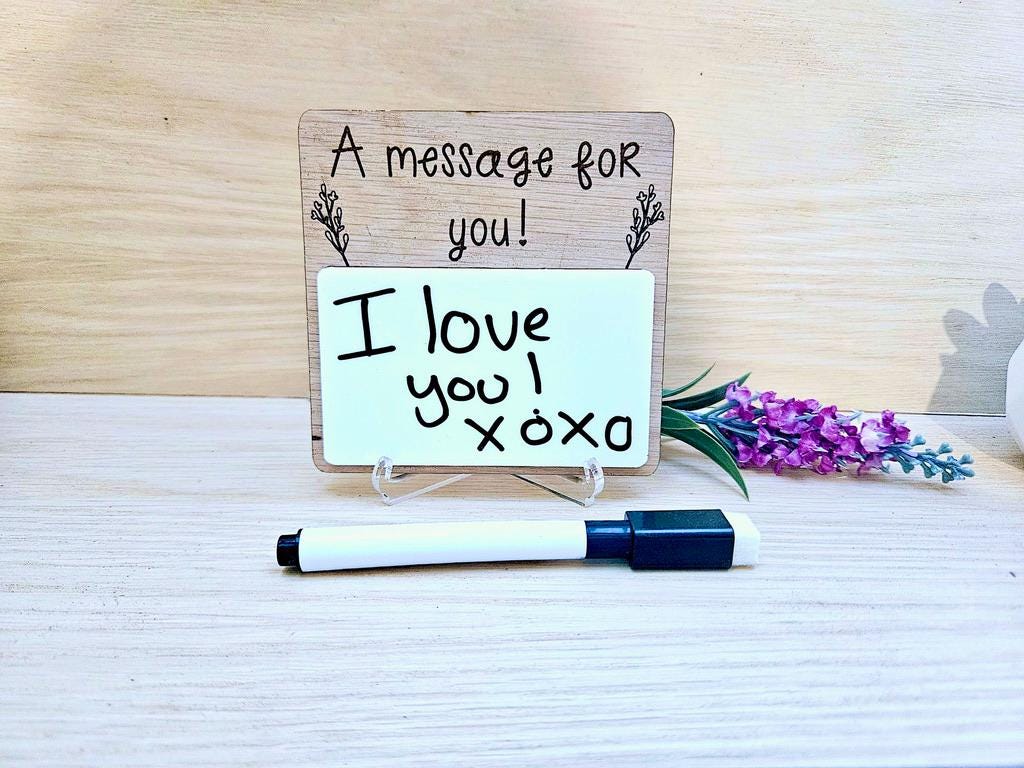 A message for
you!
I love
you!
xoxo